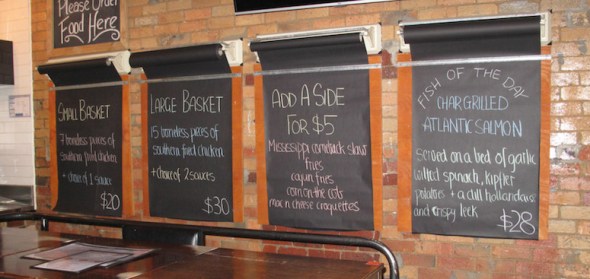 Please Order
Food Here
Small Basket
7 boneless pieces of
southern fried chicken
+ choice of 1 sauce
$20
Large Basket
15 boneless pieces of
southern fried chicken
+ choice of 2 sauces
$30
Add A Side
For $5
Mississippi comeback slaw
fries
cajun fries
corn on the cob
mac n cheese croquettes
Fish of the Day
Chargrilled
Atlantic Salmon
served on a bed of garlic
wilted spinach, kipfler
potatoes + a dill hollandaise
and crispy leek
$28